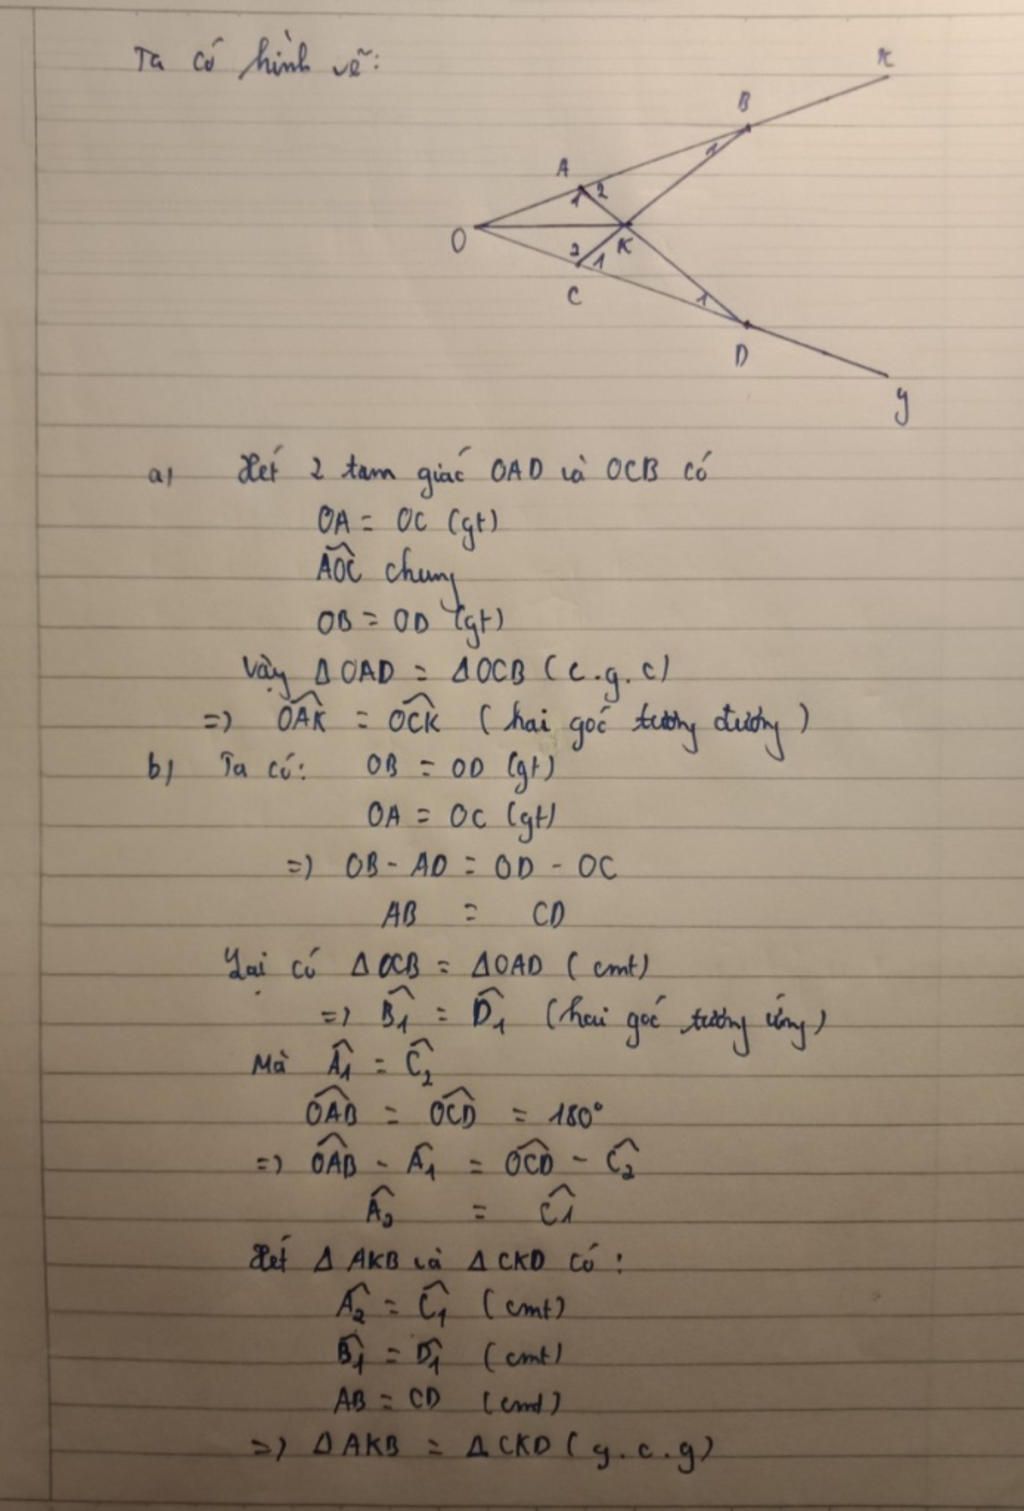 Ta có hình vẽ:
x
B
1
A
2
1
O
K
2
1
C
1
D
y
a) Xét 2 tam giác OAD và OCB có
OA = OC (gt)
$\widehat{AOC}$ chung
OB = OD (gt)
Vậy ΔOAD = ΔOCB (c.g.c)
=) $\widehat{OAK}$ = $\widehat{OCK}$ (hai góc tương đương)
b) Ta có: OB = OD (gt)
OA = OC (gt)
=) OB - AO = OD - OC
AB = CD
Lại có ΔOCB = ΔOAD (cmt)
=) $\widehat{B_1}$ = $\widehat{D_1}$ (hai góc tương ứng)
Mà $\widehat{A_1}$ = $\widehat{C_2}$
$\widehat{OAB}$ = $\widehat{OCD}$ = 180°
=) $\widehat{OAB}$ - $\widehat{A_1}$ = $\widehat{OCD}$ - $\widehat{C_2}$
$\widehat{A_2}$ = $\widehat{C_1}$
Xét Δ AKB và Δ CKD có:
$\widehat{A_2}$ = $\widehat{C_1}$ (cmt)
$\widehat{B_1}$ = $\widehat{D_1}$ (cmt)
AB = CD (cmt)
=) ΔAKB = ΔCKD (g.c.g)